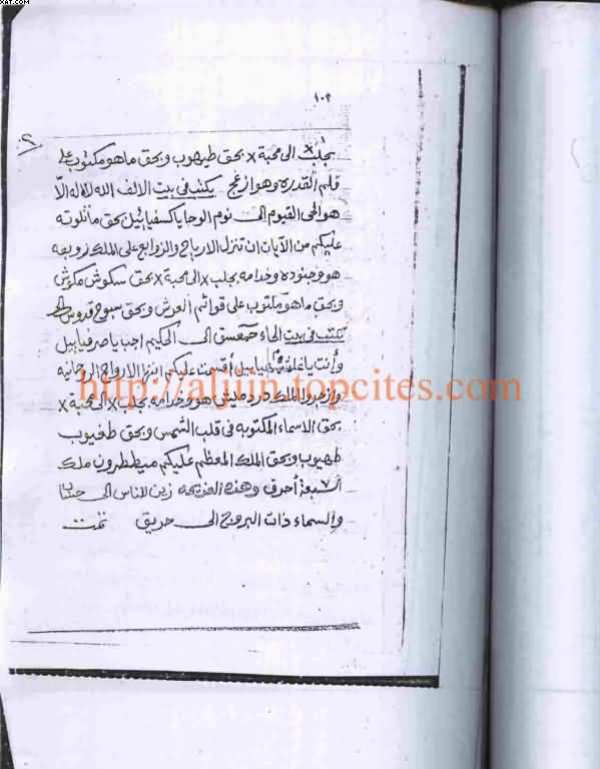 XAT.COM
١٠٢
بجلب x الى محبة x بحق طيهوب وبحق ماهو مكتوب على
قلم القدره وهوازعج يكتب فى بيت الالف الله لا اله الا
هو الحى القيوم الى نوم الوحا ياكسفيائيل بحق ماتلوته
عليكم من الآيات ان تنزل الارياح والزوابع على الملك زوبعه
هو وجنوده وخدامه بجلب x الى محبة x بحق سكوش مكوش
وبحق ماهو مكتوب على قوائم العرش وبحق سبوح قدوس
تكتب فى بيت الحاء حمعسق الى الحكيم اجب ياصرفيابيل
وأنت يا أقسمت عليكم ايتها الارواح الروحانيه
وازجروا الملك هو وخدامه بجلب x الى محبة x
بحق الاسماء المكتوبه فى قلب الشمس وبحق طغيوب
طهيوب وبحق الملك المعظم عليكم ميططرون ملك
السبعة أحرف وهذه العزيمه زين للناس الى
والسماء ذات البروج الى حريق تمت
http://aljiin.topcites.com